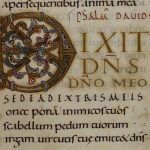 apersequentibus animamea
PSALM DAVID
DIXIT
DNS
DNO MEO
SEDE ADEXTRIS MEIS
onec ponam inimicos tuos
scabellum pedum tuorum